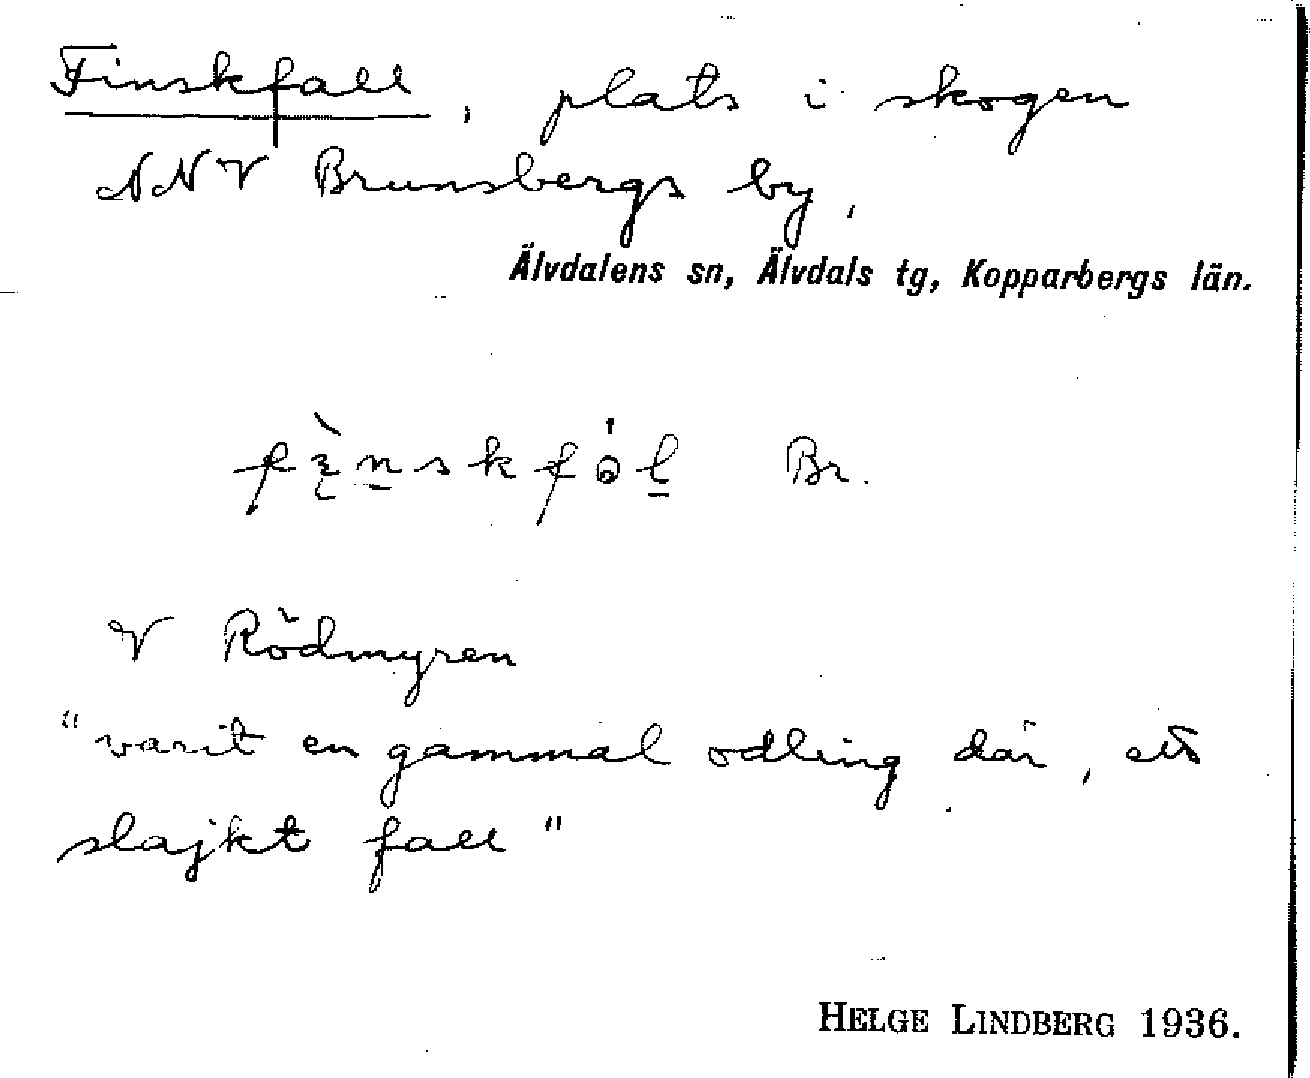 Finskfall, plats i skogen
NNV Brunsbergs by,
Älvdalens sn, Älvdals tg, Kopparbergs län.
Br.
V Rödmyren
"varit en gammal odling där, ett
slajkt fall"
HELGE LINDBERG 1936.